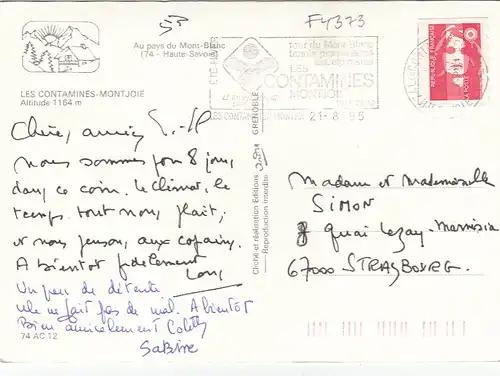 53
FY373
Au pays du Mont-Blanc
(74 - Haute-Savoie)
LES CONTAMINES-MONTJOIE
Altitude 1164 m
tour du Mont-Blanc
LES
CONTAMINES
MONTJOIE
LES CONTAMINES MONTJOIE 21-8 95
REPUBLIQUE FRANÇAISE
LA POSTE
GRENOBLE
Cliché et réalisation Editions
Reproduction interdite
Chère, amies
nous sommes pour 8 jours
dans ce coin. le climat, le
temps. tout nous plait,
et nous pensons, aux copains.
A bientot fidelement
Un peu de détente
ne fait pas de mal. A bientot
Bien amicalement Colette
Sabine
74 AC 12
Madame et Mademoiselle
SIMON
8 quai Lezay-Marnésia
67000 STRASBOURG.